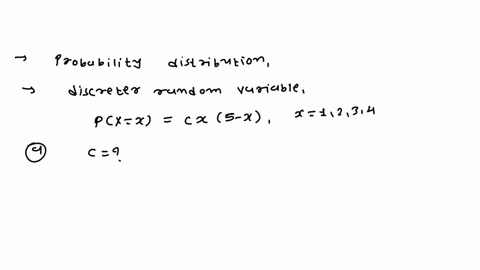 → Probability distribution,
→ discreter random variable,
P(X=x) = cx (5-x), x=1,2,3,4
(a) c=?